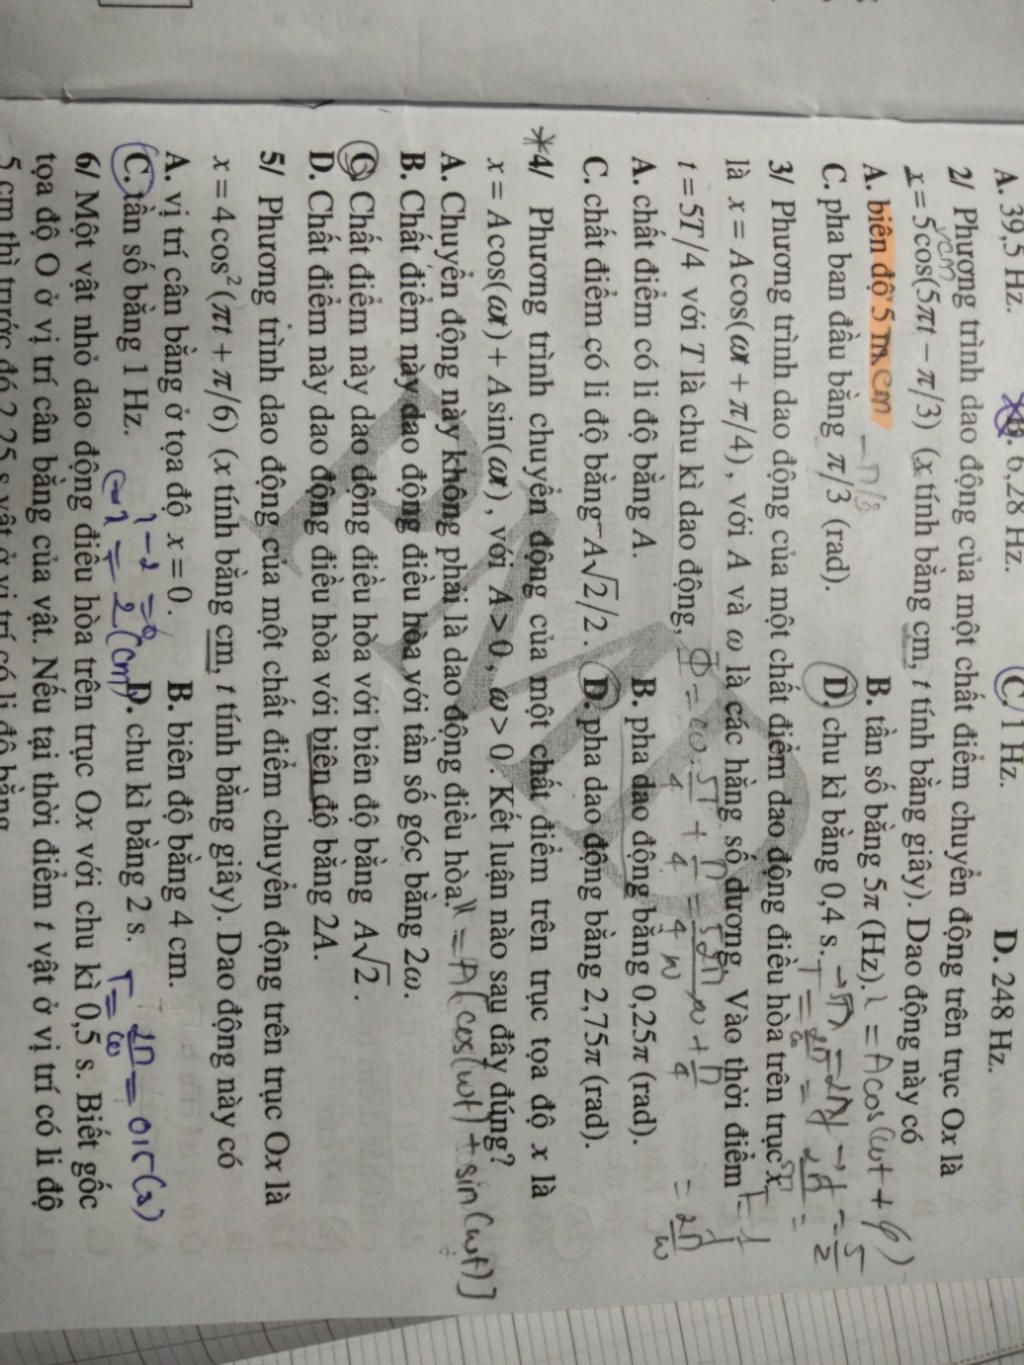 A. 39,5 Hz. B. 6,28 Hz. C. 1 Hz. D. 248 Hz.
2/ Phương trình dao động của một chất điểm chuyển động trên trục Ox là
x = 5cos(5πt − π/3) (x tính bằng cm, t tính bằng giây). Dao động này có
A. biên độ 5 m cm B. tần số bằng 5π (Hz). x = Acos(ωt + φ)
−π/3
C. pha ban đầu bằng π/3 (rad). D. chu kì bằng 0,4 s.
3/ Phương trình dao động của một chất điểm dao động điều hòa trên trục x
là x = Acos(ωt + π/4), với A và ω là các hằng số dương. Vào thời điểm
t = 5T/4 với T là chu kì dao động,
A. chất điểm có li độ bằng A. B. pha dao động bằng 0,25π (rad).
C. chất điểm có li độ bằng −A√2/2. D. pha dao động bằng 2,75π (rad).
*4/ Phương trình chuyển động của một chất điểm trên trục tọa độ x là
x = Acos(ωt) + Asin(ωt), với A > 0, ω > 0. Kết luận nào sau đây đúng?
A. Chuyển động này không phải là dao động điều hòa. = A[cos(ωt) + sin(ωt)]
B. Chất điểm này dao động điều hòa với tần số góc bằng 2ω.
C. Chất điểm này dao động điều hòa với biên độ bằng A√2.
D. Chất điểm này dao động điều hòa với biên độ bằng 2A.
5/ Phương trình dao động của một chất điểm chuyển động trên trục Ox là
x = 4cos²(πt + π/6) (x tính bằng cm, t tính bằng giây). Dao động này có
A. vị trí cân bằng ở tọa độ x = 0. B. biên độ bằng 4 cm.
C. tần số bằng 1 Hz. D. chu kì bằng 2 s.
= 2 (cm)
6/ Một vật nhỏ dao động điều hòa trên trục Ox với chu kì 0,5 s. Biết gốc
tọa độ O ở vị trí cân bằng của vật. Nếu tại thời điểm t vật ở vị trí có li độ
5 cm thì trước đó 2,25 s vật ở vị trí có li độ bằng
PMD